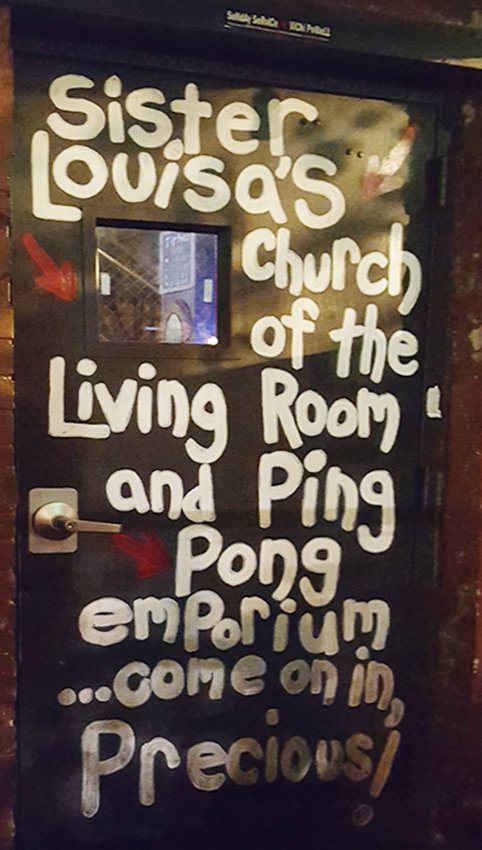 Sister
Louisa's
church
of the
Living Room
and Ping
Pong
emPorium
...come on in,
Precious!